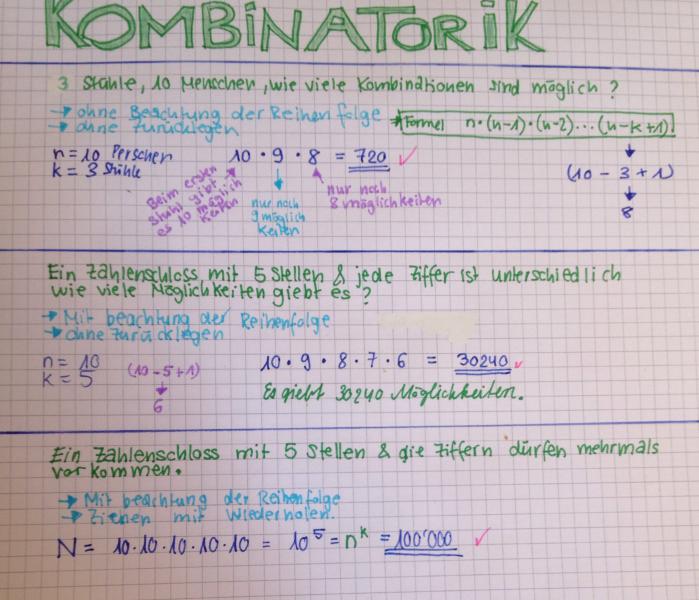 KOMBINATORIK
3 Stühle, 10 Menschen, wie viele Kombinationen sind möglich?
→ ohne Beachtung der Reihenfolge
→ ohne zurücklegen
→ Formel n·(n-1)·(n-2)...(n-k+1)!
n = 10 Perschen
k = 3 Stühle
10 · 9 · 8 = 720 ✓
(10 - 3 + 1)
8
Beim ersten
Stuhl gibt
es 10 möglich
keiten
nur noch
9 möglich
keiten
nur noch
8 möglichkeiten
Ein Zahlenschloss mit 5 Stellen & jede Ziffer ist unterschiedlich
wie viele Möglichkeiten giebt es?
→ Mit beachtung der Reihenfolge
→ ohne zurücklegen
n = 10
k = 5
(10 - 5 + 1)
6
10 · 9 · 8 · 7 · 6 = 30240 ✓
Es giebt 30240 Möglichkeiten.
Ein Zahlenschloss mit 5 Stellen & die Ziffern dürfen mehrmals
vorkommen.
→ Mit beachtung der Reihenfolge
→ Ziehen mit Wiederholen.
N = 10·10·10·10·10 = 10⁵ = nᵏ = 100'000 ✓